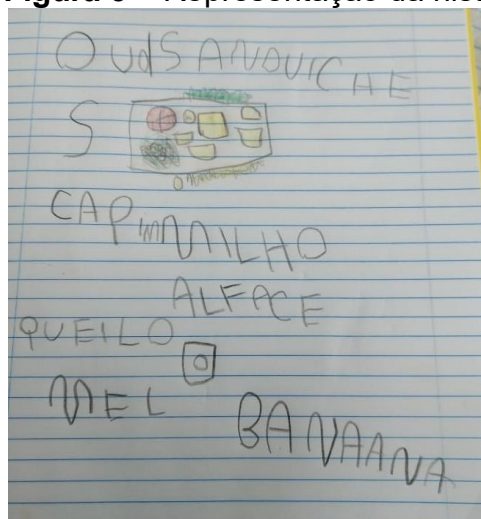 OUdSANDUICHE
S
CAPimMILHO
ALFACE
QUEILO
MEL
BANAANA